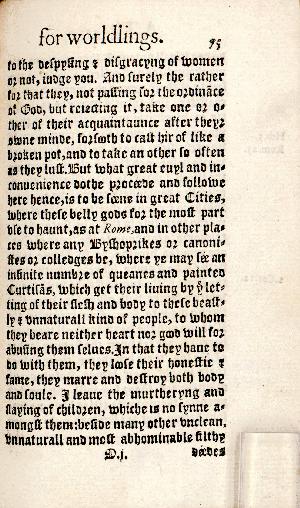 for worldlings. 95
to the despysing & disgracyng of women
or not, iudge you. And surely the rather
for that they, not passing for the ordināce
of God, but reiecting it, take one or o-
ther of their acquaintaunce after theyr
owne minde, forsoth to cast hir of like a
broken pot, and to take an other so often
as they lust. But what great euyl and in-
conuenience dothe procede and followe
here hence, is to be sene in great Cities,
where these belly gods for the most part
vse to haunt, as at Rome, and in other pla-
ces where any Byshoprikes or canoni-
ses or colledges be, where ye may see an
infinite numbre of queanes and painted
Curtisās, which get their liuing by yͤ let-
ting of their flesh and body to these beast-
ly & vnnaturall kind of people, to whom
they beare neither heart nor good will for
abusing them selues. In that they haue to
do with them, they lose their honestie &
fame, they marre and destroy both body
and soule. I leaue the murtheryng and
slaying of children, whiche is no synne a-
mongst them: beside many other vnclean,
vnnaturall and most abhominable filthy
D.j. dedes